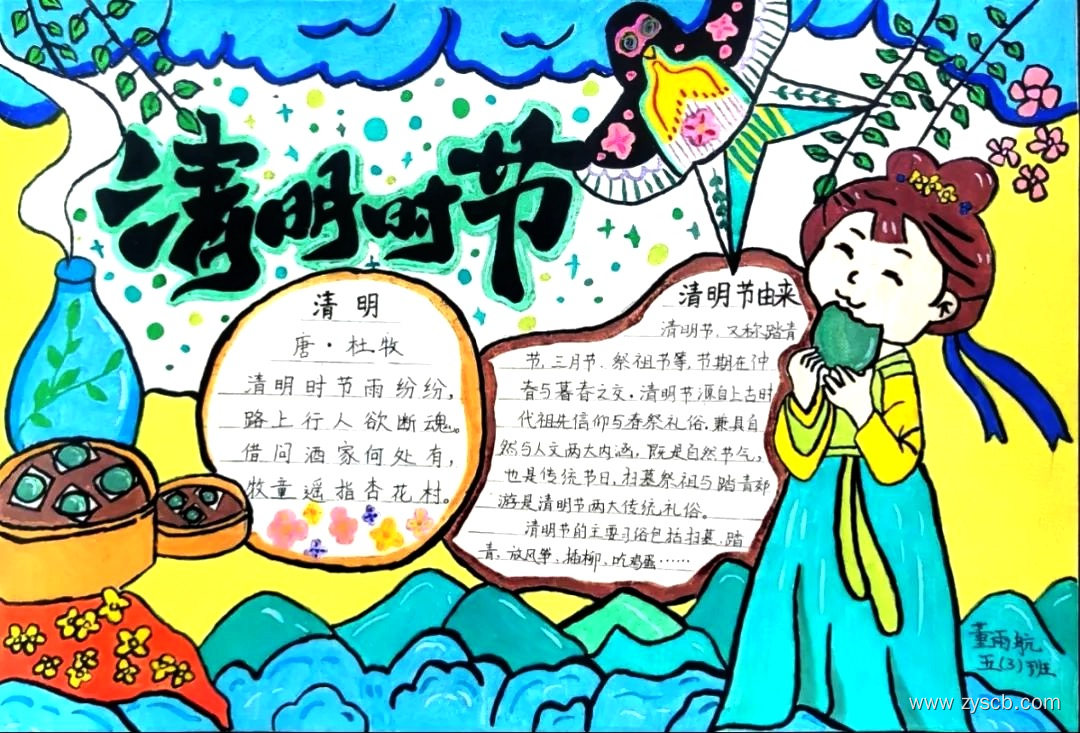 清明时节
清明
唐·杜牧
清明时节雨纷纷，
路上行人欲断魂。
借问酒家何处有，
牧童遥指杏花村。
清明节由来
清明节，又称踏青
节，三月节、祭祖节等，节期在仲
春与暮春之交。清明节源自上古时
代祖先信仰与春祭礼俗，兼具自
然与人文两大内涵，既是自然节气，
也是传统节日，扫墓祭祖与踏青郊
游是清明节两大传统礼俗。
清明节的主要习俗包括扫墓、踏
青、放风筝、插柳、吃鸡蛋……
董雨航
五(3)班
www.zyscb.com